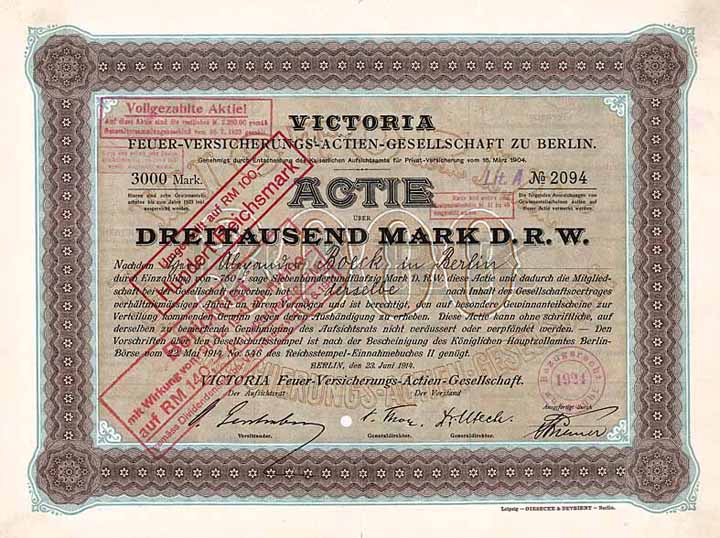 Vollgezahlte Aktie!
Auf diese Aktie sind die restlichen M. 2.250.00 gemäß
Generalversammlungsbeschluß vom 10. 7. 1923 gezahlt
VICTORIA
FEUER-VERSICHERUNGS-ACTIEN-GESELLSCHAFT ZU BERLIN.
Genehmigt durch Entscheidung des Kaiserlichen Aufsichtsamts für Privat-Versicherung vom 16. März 1904.
3000 Mark.
Lit. A
No 2094
Hierzu sind zehn Gewinnanteilscheine bis zum Jahre 1923
ausgereicht worden.
Die folgenden Ausreichungen von
Gewinnanteilscheinen sollen auf
dieser Actie vermerkt werden.
ACTIE
ÜBER
3000
DREITAUSEND MARK D. R. W.
Umgestellt auf RM 100,-
Hundert Reichsmark
mit Wirkung vom
auf RM 140,-
Nachdem Alexander Boeck in Berlin
durch Einzahlung von 750 sage Siebenhundertundfünfzig Mark D. R. W. diese Actie und dadurch die Mitglied-
schaft bei der Gesellschaft erworben, hat derselbe nach Inhalt des Gesellschaftsvertrages
verhältnismässigen Anteil an deren Vermögen und ist berechtigt, den auf besondere Gewinnanteilscheine zur
Verteilung kommenden Gewinn gegen deren Aushändigung zu erheben. Diese Actie kann ohne schriftliche, auf
derselben zu bemerkende Genehmigung des Aufsichtsrats nicht veräussert oder verpfändet werden. — Den
Vorschriften über den Gesellschaftsstempel ist nach der Bescheinigung des Königlichen Hauptzollamtes Berlin-
Börse vom 22. Mai 1914 No. 546 des Reichsstempel-Einnahmebuches II genügt.
BERLIN, den 23. Juni 1914.
VICTORIA Feuer-Versicherungs-Actien-Gesellschaft.
Der Aufsichtsrat
Der Vorstand
1924
Ausgefertigt durch
Vorsitzender.
Generaldirector.
Generaldirector.
Leipzig — GIESECKE & DEVRIENT — Berlin.